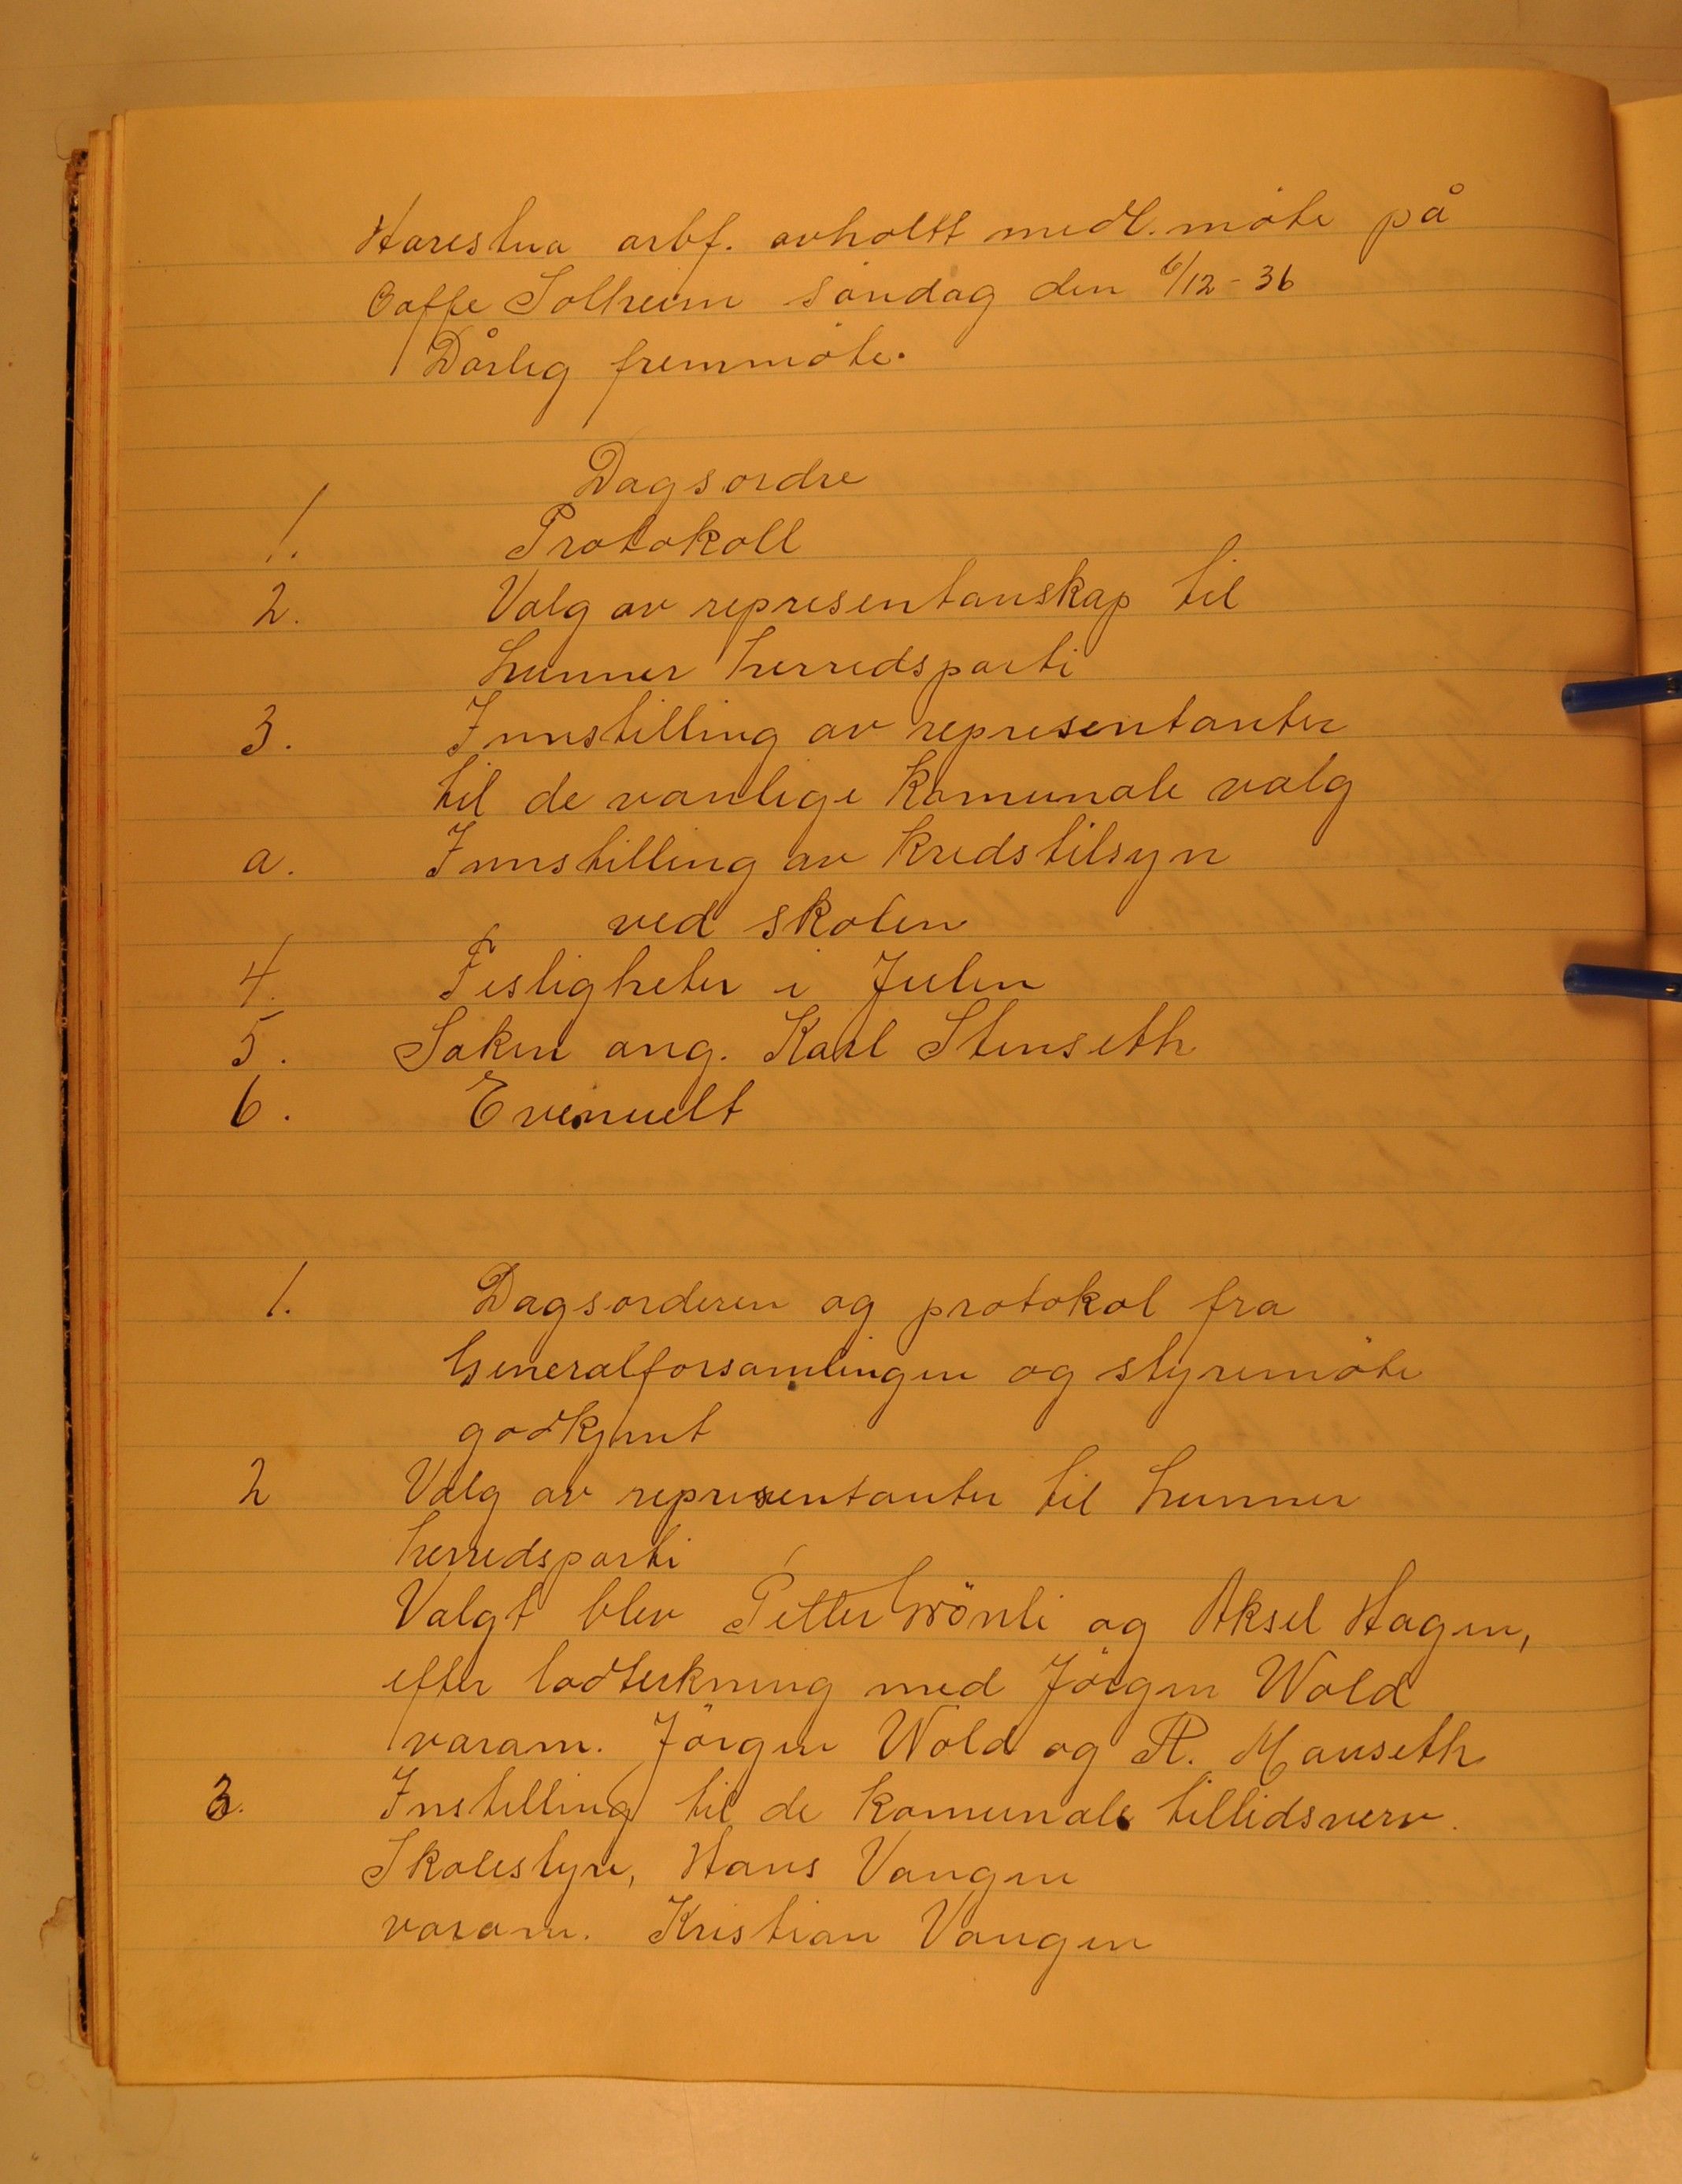 Harestua arbf. avholdt medl. möte på
Caffe Solheim söndag den 6/12-36
Dårlig fremmöte.
Dagsordre
1. Protokoll
2. Valg av representanskap til
Lunner herredsparti
3. Innstilling av representanter
til de vanlige komunale valg
a. Innstilling av kredstilsyn
ved skolen
4. Festligheter i Julen
5. Saken ang. Karl Stenseth
6. Evenuelt
1. Dagsorderen og protokol fra
Generalforsamlingen og styremöte
godkjent
2 Valg av representanter til Lunner
herredsparti
Valgt blev Petter Grönli og Aksel Hagen,
efter lodtrekning med Jörgen Wold
varam. Jörgen Wold og R. Mauseth
3. Instilling til de komunale tillidsverv.
Skolestyre, Hans Vangen
varam. Kristian Vangen